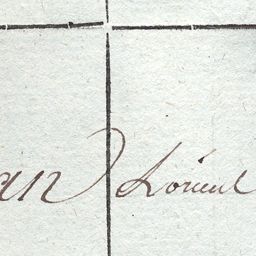 an Lorient